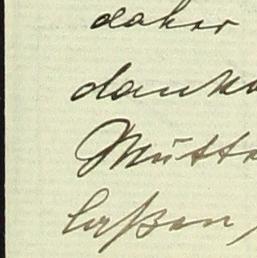 daher
danko
Mutte
laßen,